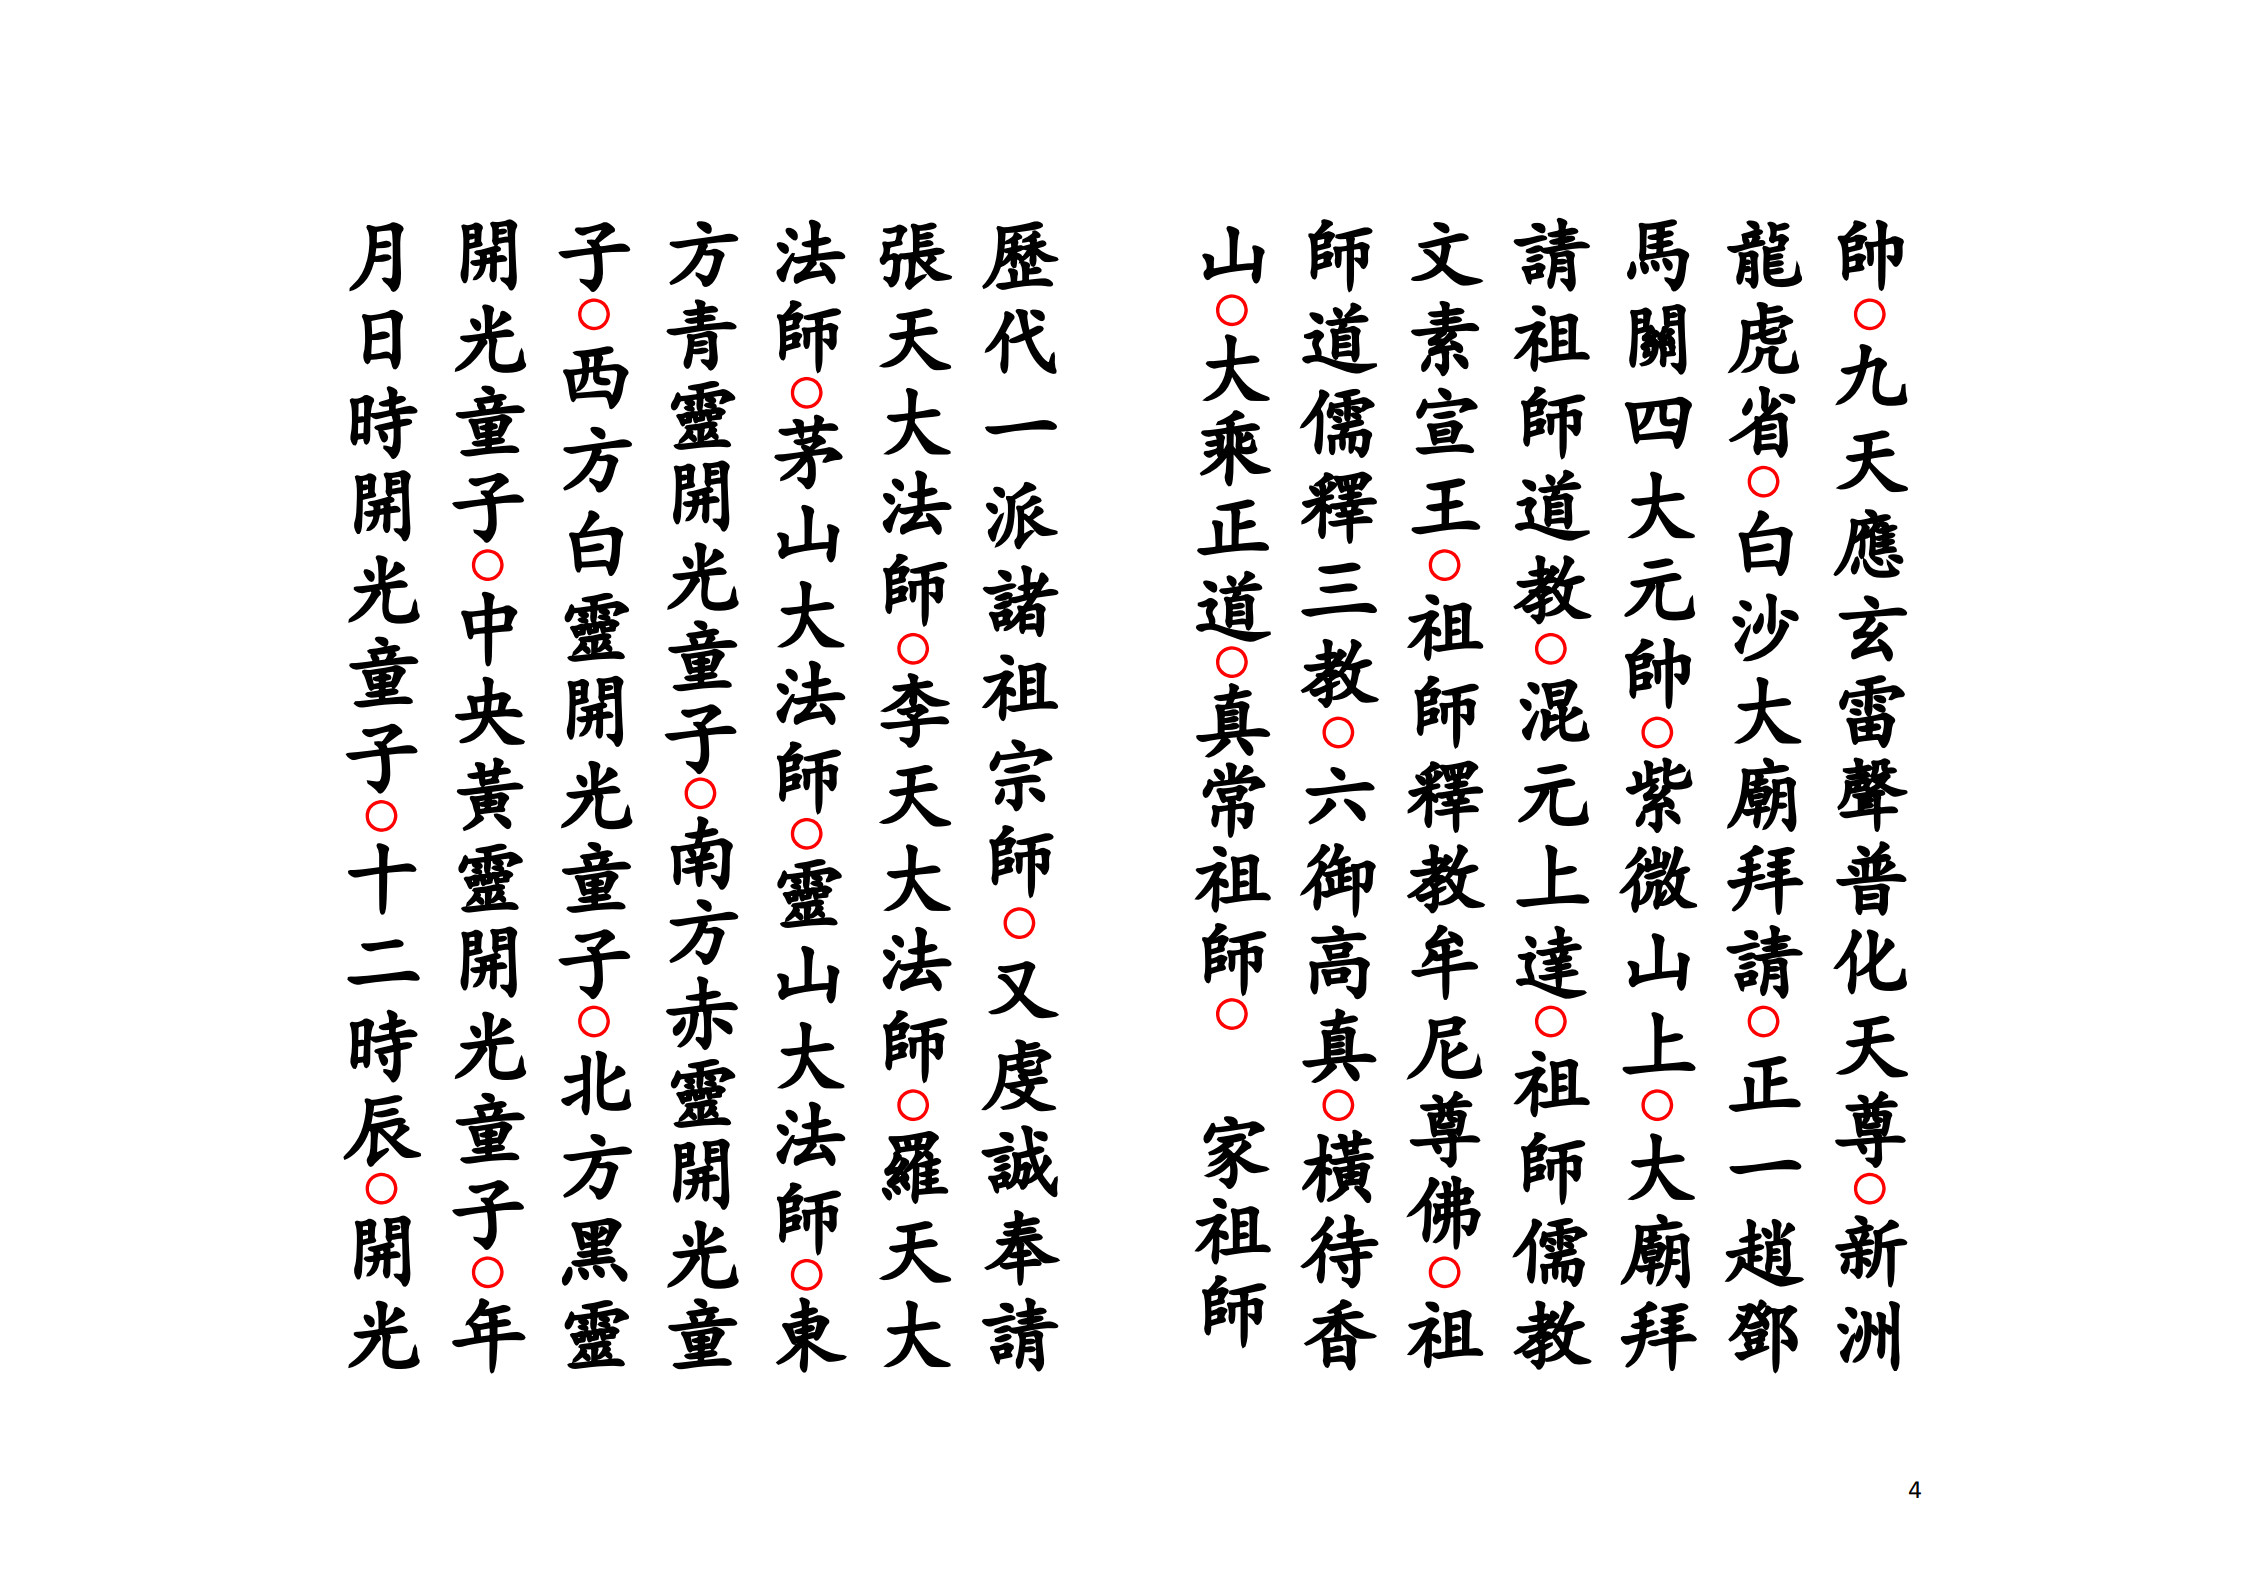 帥○九天應玄雷聲普化天尊○新洲
龍虎省○白沙大廟拜請○正一趙鄧
馬關四大元帥○紫微山上○大廟拜
請祖師道教○混元上達○祖師儒教
文素宣王○祖師釋教牟尼尊佛○祖
師道儒釋三教○六御高真○橫待香
山○大乘正道○真常祖師○　家祖師
歷代一派諸祖宗師○又虔誠奉請
張天大法師○李天大法師○羅天大
法師○茅山大法師○靈山大法師○東
方青靈開光童子○南方赤靈開光童
子○西方白靈開光童子○北方黑靈
開光童子○中央黃靈開光童子○年
月日時開光童子○十二時辰○開光
4